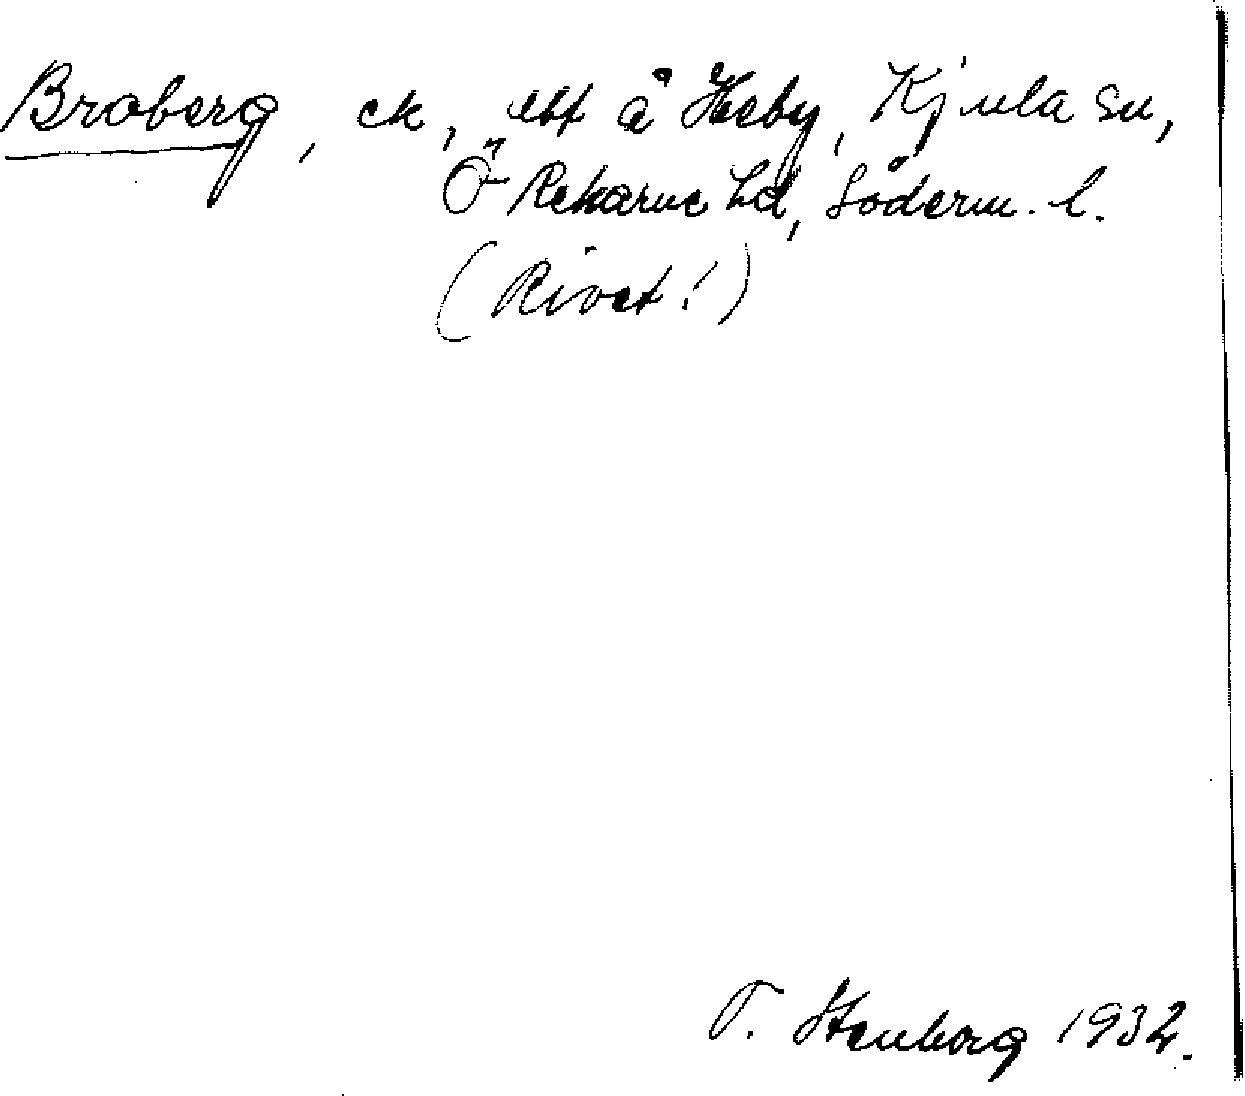 Broberg, ck, ebt å Heby, Kjula sn,
Ö Rekarne hd, Söderm. l.
(Rivet!)
T. Stenborg 1932.